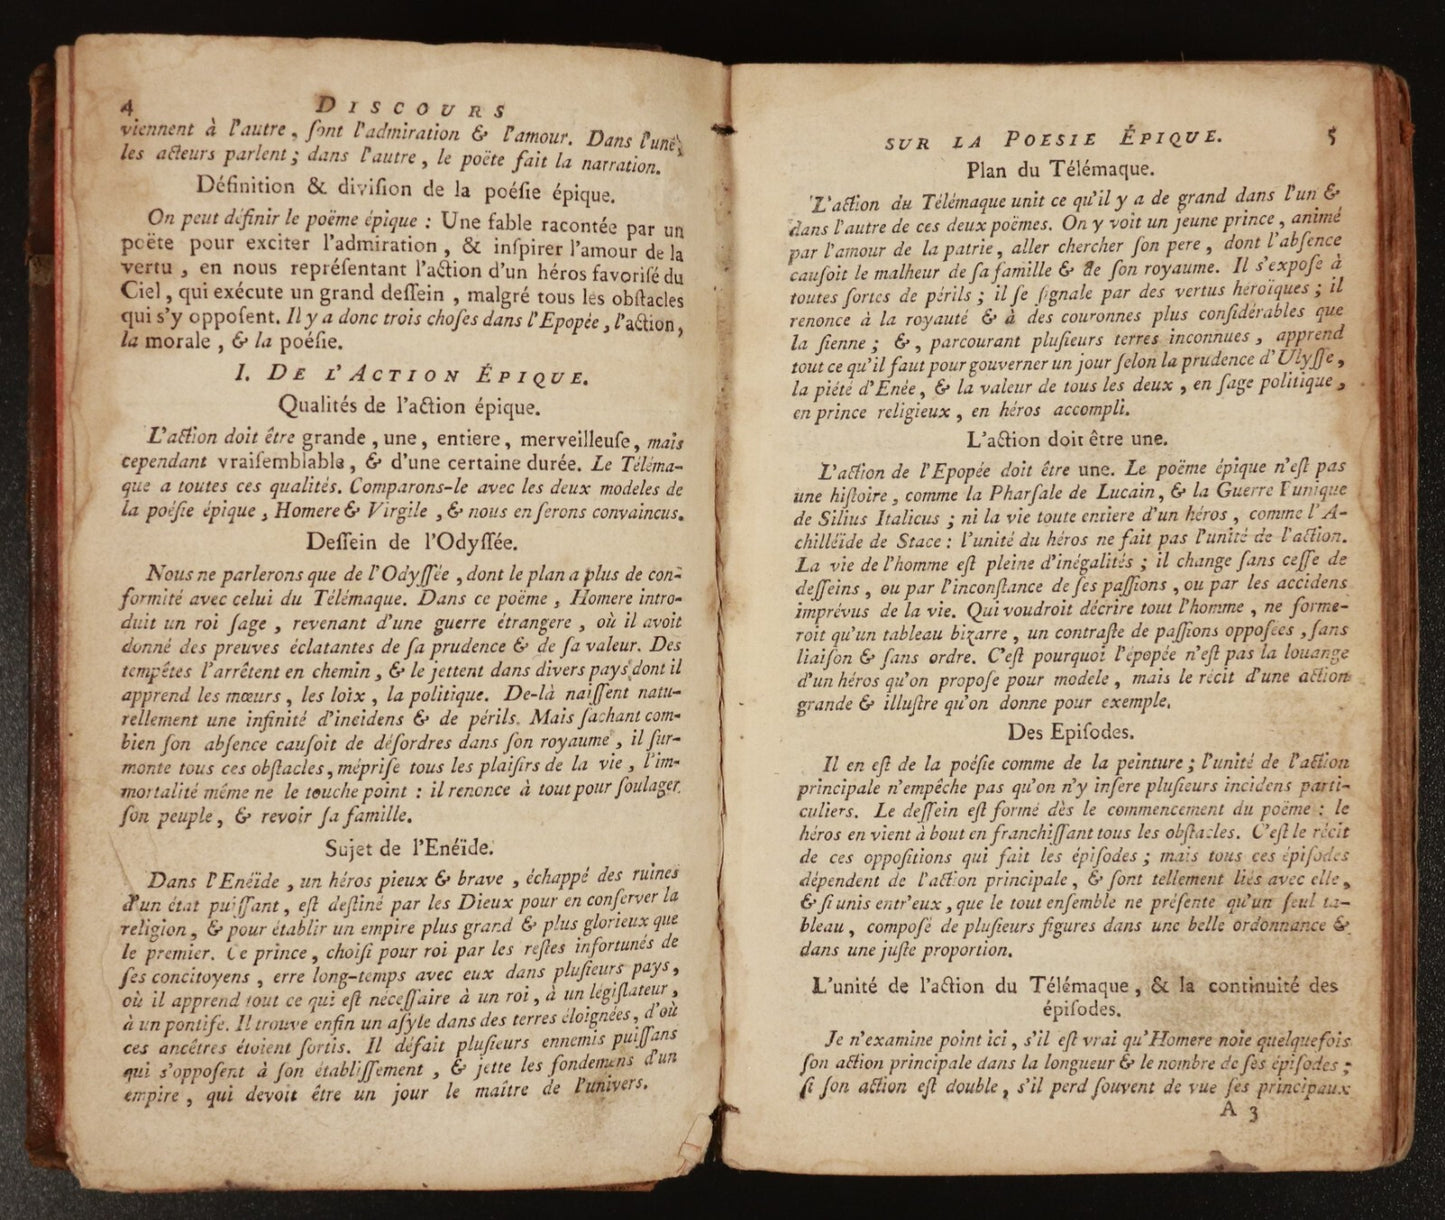 4 DISCOURS
viennent à l'autre, ſont l'admiration & l'amour. Dans l'une,
les acteurs parlent; dans l'autre, le poëte fait la narration.
Définition & diviſion de la poéſie épique.
On peut définir le poëme épique : Une fable racontée par un
poëte pour exciter l'admiration, & inſpirer l'amour de la
vertu, en nous repréſentant l'action d'un héros favoriſé du
Ciel, qui exécute un grand deſſein, malgré tous les obſtacles
qui s'y oppoſent. Il y a donc trois choſes dans l'Epopée, l'action,
la morale, & la poéſie.
I. DE L'ACTION ÉPIQUE.
Qualités de l'action épique.
L'action doit être grande, une, entiere, merveilleuſe, mais
cependant vraiſemblable, & d'une certaine durée. Le Téléma-
que a toutes ces qualités. Comparons-le avec les deux modeles de
la poéſie épique, Homere & Virgile, & nous en ſerons convaincus.
Deſſein de l'Odyſſée.
Nous ne parlerons que de l'Odyſſée, dont le plan a plus de con-
formité avec celui du Télémaque. Dans ce poëme, Homere intro-
duit un roi ſage, revenant d'une guerre étrangere, où il avoit
donné des preuves éclatantes de ſa prudence & de ſa valeur. Des
tempêtes l'arrêtent en chemin, & le jettent dans divers pays dont il
apprend les mœurs, les loix, la politique. De-là naiſſent natu-
rellement une infinité d'incidens & de périls. Mais ſachant com-
bien ſon abſence cauſoit de déſordres dans ſon royaume, il ſur-
monte tous ces obſtacles, mépriſe tous les plaiſirs de la vie, l'im-
mortalité même ne le touche point : il renonce à tout pour ſoulager
ſon peuple, & revoir ſa famille.
Sujet de l'Enéïde.
Dans l'Enéïde, un héros pieux & brave, échappé des ruines
d'un état puiſſant, eſt deſtiné par les Dieux pour en conſerver la
religion, & pour établir un empire plus grand & plus glorieux que
le premier. Ce prince, choiſi pour roi par les reſtes infortunés de
ſes concitoyens, erre long-temps avec eux dans pluſieurs pays,
où il apprend tout ce qui eſt néceſſaire à un roi, à un légiſlateur,
à un pontife. Il trouve enfin un aſyle dans des terres éloignées, d'où
ces ancêtres étoient ſortis. Il défait pluſieurs ennemis puiſſans
qui s'oppoſent à ſon établiſſement, & jette les fondemens d'un
empire, qui devoit être un jour le maître de l'univers.
SUR LA POESIE ÉPIQUE. 5
Plan du Télémaque.
L'action du Télémaque unit ce qu'il y a de grand dans l'un &
dans l'autre de ces deux poëmes. On y voit un jeune prince, animé
par l'amour de la patrie, aller chercher ſon pere, dont l'abſence
cauſoit le malheur de ſa famille & de ſon royaume. Il s'expoſe à
toutes ſortes de périls; il ſe ſignale par des vertus héroïques; il
renonce à la royauté & à des couronnes plus conſidérables que
la ſienne; &, parcourant pluſieurs terres inconnues, apprend
tout ce qu'il faut pour gouverner un jour ſelon la prudence d'Ulyſſe,
la piété d'Enée, & la valeur de tous les deux, en ſage politique,
en prince religieux, en héros accompli.
L'action doit être une.
L'action de l'Epopée doit être une. Le poëme épique n'eſt pas
une hiſtoire, comme la Pharſale de Lucain, & la Guerre Punique
de Silius Italicus; ni la vie toute entiere d'un héros, comme l'A-
chilléïde de Stace : l'unité du héros ne fait pas l'unité de l'action.
La vie de l'homme eſt pleine d'inégalités; il change ſans ceſſe de
deſſeins, ou par l'inconſtance de ſes paſſions, ou par les accidens
imprévus de la vie. Qui voudroit décrire tout l'homme, ne forme-
roit qu'un tableau bizarre, un contraſte de paſſions oppoſées, ſans
liaiſon & ſans ordre. C'eſt pourquoi l'épopée n'eſt pas la louange
d'un héros qu'on propoſe pour modele, mais le récit d'une action
grande & illuſtre qu'on donne pour exemple.
Des Epiſodes.
Il en eſt de la poéſie comme de la peinture; l'unité de l'action
principale n'empêche pas qu'on n'y inſere pluſieurs incidens parti-
culiers. Le deſſein eſt formé dès le commencement du poëme : le
héros en vient à bout en franchiſſant tous les obſtacles. C'eſt le récit
de ces oppoſitions qui fait les épiſodes; mais tous ces épiſodes
dépendent de l'action principale, & ſont tellement liés avec elle,
& ſi unis entr'eux, que le tout enſemble ne préſente qu'un ſeul ta-
bleau, compoſé de pluſieurs figures dans une belle ordonnance &
dans une juſte proportion.
L'unité de l'action du Télémaque, & la continuité des
épiſodes.
Je n'examine point ici, s'il eſt vrai qu'Homere noie quelquefois
ſon action principale dans la longueur & le nombre de ſes épiſodes;
ſi ſon action eſt double, s'il perd ſouvent de vue ſes principaux
A 3